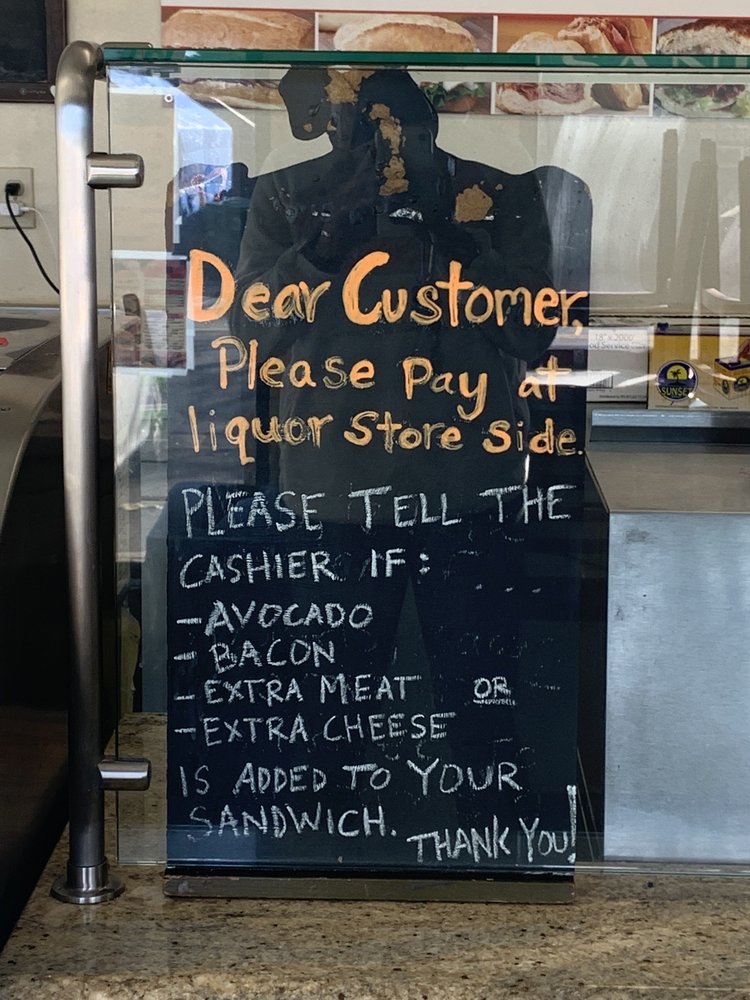 Dear Customer,
Please Pay at
liquor Store Side.
PLEASE TELL THE
CASHIER IF:
- AVOCADO
- BACON
- EXTRA MEAT OR
- EXTRA CHEESE
IS ADDED TO YOUR
SANDWICH.
THANK YOU!
SUNSET